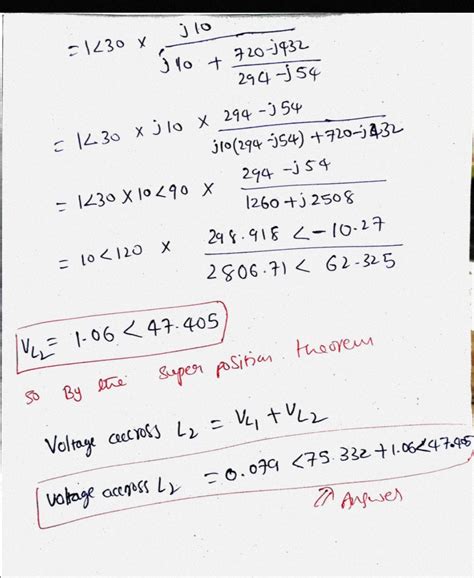 = 1<30 × j10 / (j10 + (720-j432 / 294-j54))
= 1<30 × j10 × 294-j54 / (j10(294-j54) + 720-j432)
= 1<30 × 10<90 × 294-j54 / 1260+j2508
= 10<120 × 298.918 <-10.27 / 2806.71 < 62.325
VL2 = 1.06 < 47.405
so By the super position theorem
Voltage accross L2 = VL1 + VL2
voltage accross L2 = 0.079 <75.332 + 1.06<47.405
Answer